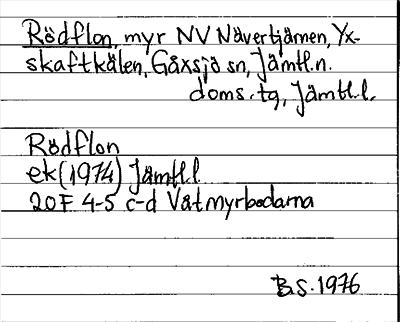 Rödflon, myr NV Nävertjärnen, Yx-
skaftkälen, Gåxsjö sn, Jämtl.n.
doms.tg, Jämtl.l.
Rödflon
ek (1974) Jämtl.l
20F 4-5 c-d Våtmyrbodarna
B.S. 1976